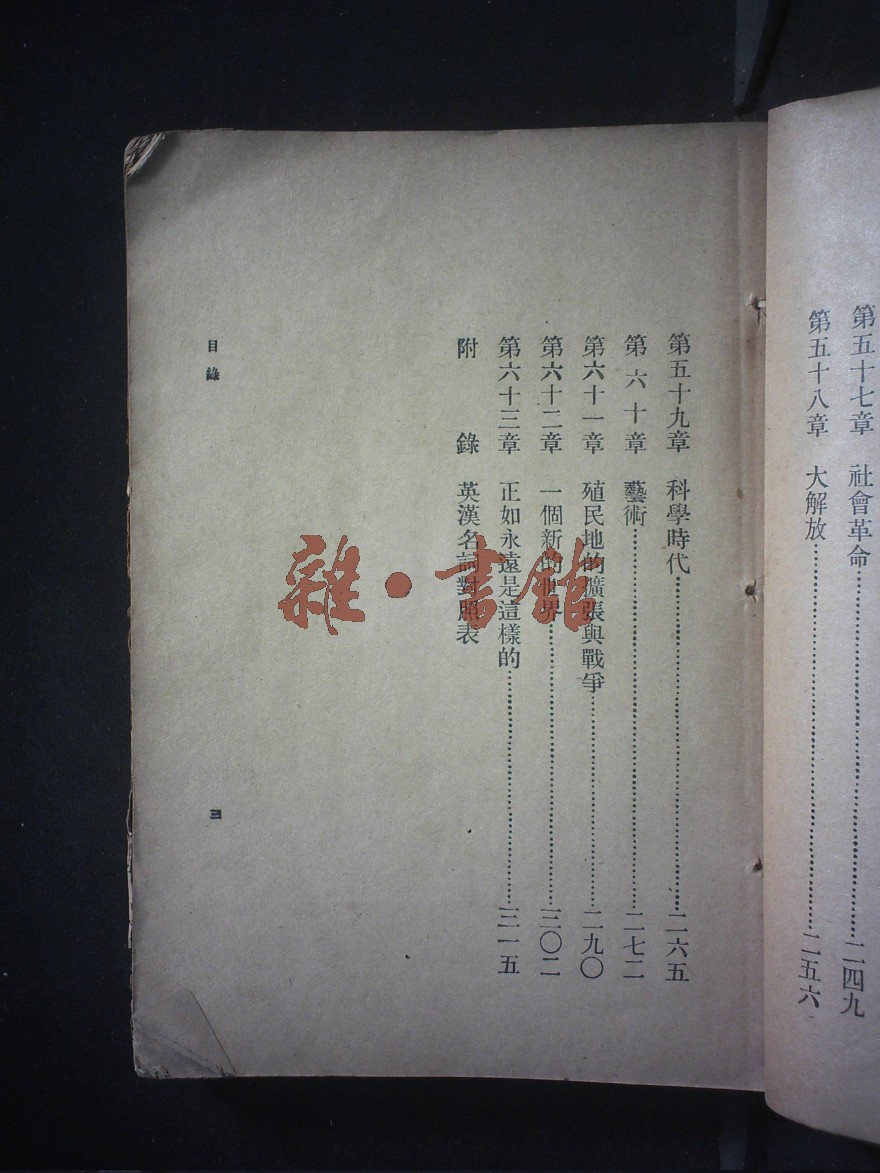 第五十七章 社會革命……二四九
第五十八章 大解放……二五六
第五十九章 科學時代……二六五
第六十章 藝術……二七二
第六十一章 殖民地的擴張與戰爭……二九〇
第六十二章 一個新的世界……三〇二
第六十三章 正如永遠是這樣的……三一五
附錄 英漢名詞對照表
目錄
三
雜·書館